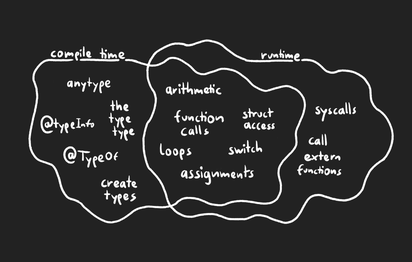 compile time
runtime
anytype
the
type
type
@typeInfo
@TypeOf
create
types
arithmetic
function
calls
struct
access
loops
switch
assignments
syscalls
call
extern
functions